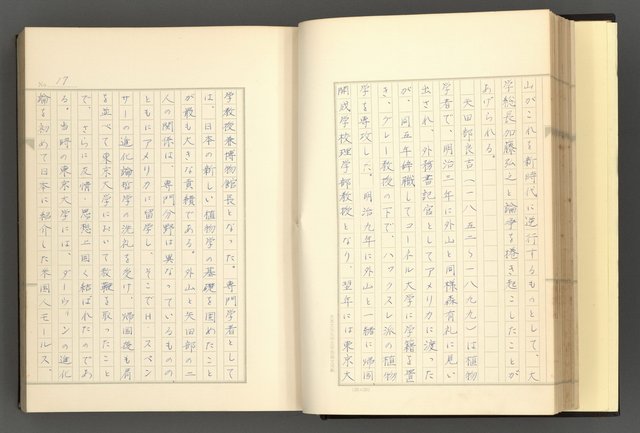 山がこれを新時代に逆行するものとして、大
学総長加藤弘之と論争を捲き起こしたことが
あげられる。
矢田部良吉(一八五二～一八九九)は植物
学者で、明治三年に外山と同様森有礼に見い
出され、外務書記官としてアメリカに渡った
が、同五年辞職してコーネル大学に学籍を置
き、グレー教授の下で、ハックスレ派の植物
学を専攻した。明治九年に外山と一緒に帰国
開成学校理学部教授となり、翌年には東京大
No. 17
学教授兼博物館長となった。専門学者として
は、日本の新しい植物学の基礎を固めたこと
が最も大きな貢積である。外山と矢田部の二
人の関係は、専門分野は異なっているものの
ともにアメリカに留学し、そこでH・スペン
サーの進化論哲学の洗礼を受け、帰国後も肩
を並べて東京大学において教鞭を取ったこと
で、さらに友情・思想ニ固く結ばれたのであ
る。当時の東京大学には、ダーウィンの進化
論を初めて日本に紹介した米国人モールス、